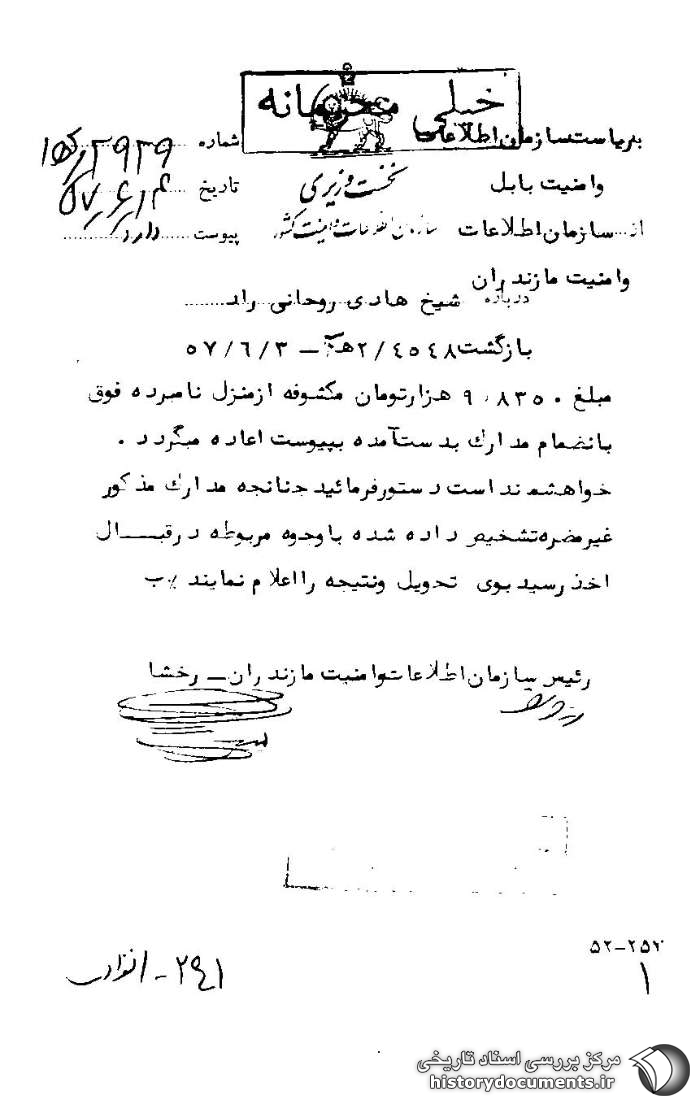 خیلی محرمانه
بریاست سازمان اطلاعات
شماره
وامنیت بابل
نخست وزیری
تاریخ ۵۷/۶/۱۴
از سازمان اطلاعات
سازمان اطلاعات و امنیت کشور
پیوست دارد
وامنیت مازندران
درباره شیخ هادی روحانی راد
بازگشت ۲/۴۵۴۸ - ۵۷/۶/۳
مبلغ ۹٫۸۳۵۰ هزارتومان مکشوفه ازمنزل نامبرده فوق
بانضمام مدارک بدست آمده بپیوست اعاده میگردد .
خواهشمند است دستورفرمائید چنانچه مدارک مذکور
غیرمضره تشخیص داده شده باوجوه مربوطه درقبال
اخذ رسید بوی تحویل ونتیجه رااعلام نمایند
رئیس سازمان اطلاعات وامنیت مازندران – رخشا
۵۲-۲۵۷
۱
۲۹۱-
مرکز بررسی اسناد تاریخی
historydocuments.ir